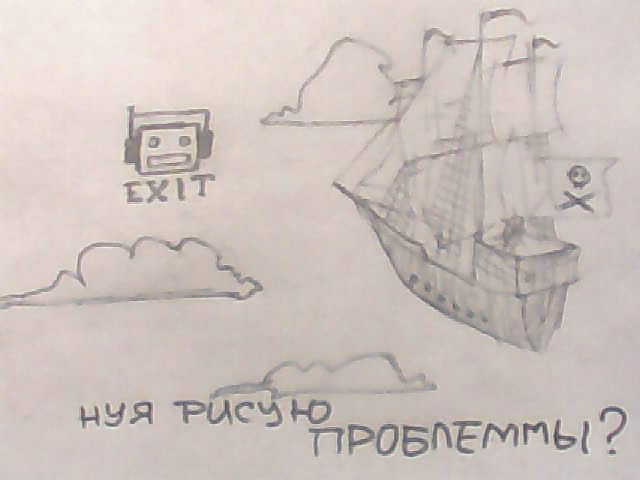 EXIT
НУЯ РИСУЮ
ПРОБЛЕММЫ?